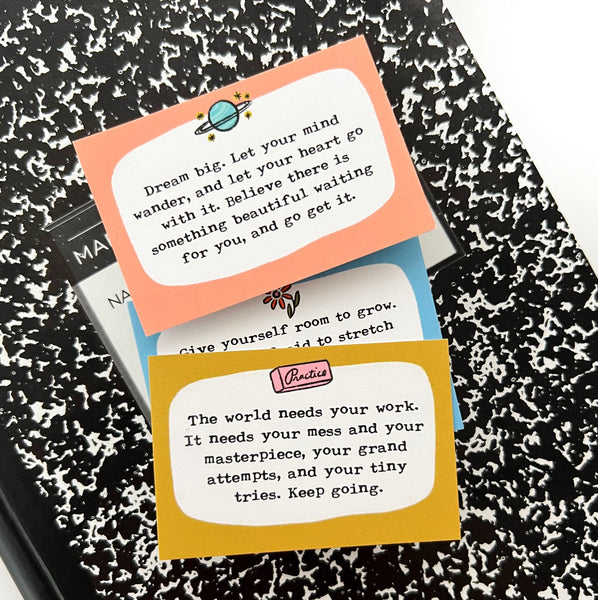 Dream big. Let your mind
wander, and let your heart go
with it. Believe there is
something beautiful waiting
for you, and go get it.
MA
NA
Give yourself room to grow.
to stretch
Practice
The world needs your work.
It needs your mess and your
masterpiece, your grand
attempts, and your tiny
tries. Keep going.